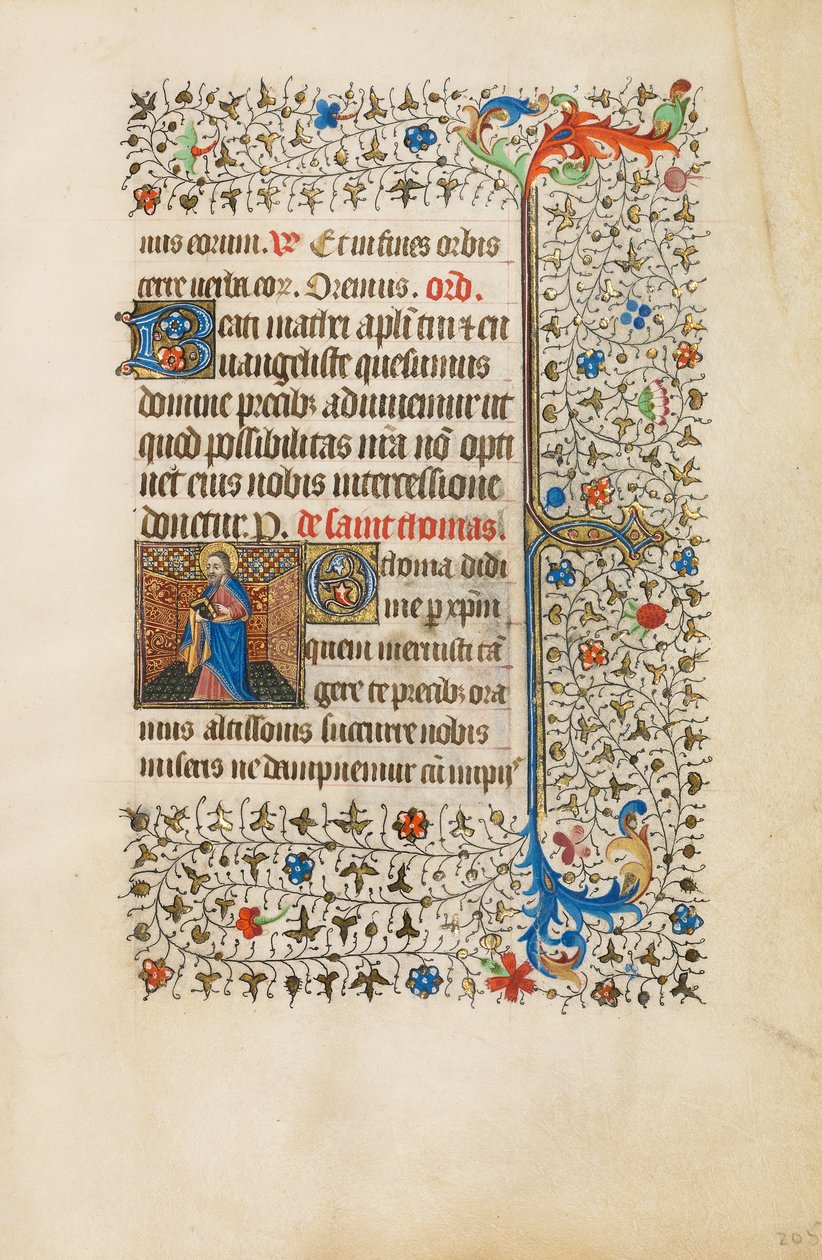 nus eorum. V Et in fines orbis
terre verba eoꝝ. Oremus. orõ.
Beati mathei apłi tui ⁊ eu
uangeliste quesumus
domine precibꝫ adiuuemur ut
quod possibilitas nr̃a nõ opti
net eius nobis intercessione
donetur. P. de saint thomas.
O thoma didi
me ꝑ xp̃m
quem meruisti tã
gere te precibꝫ ora
mus altissonis succurre nobis
miseris ne dampnemur cũ impijs
205